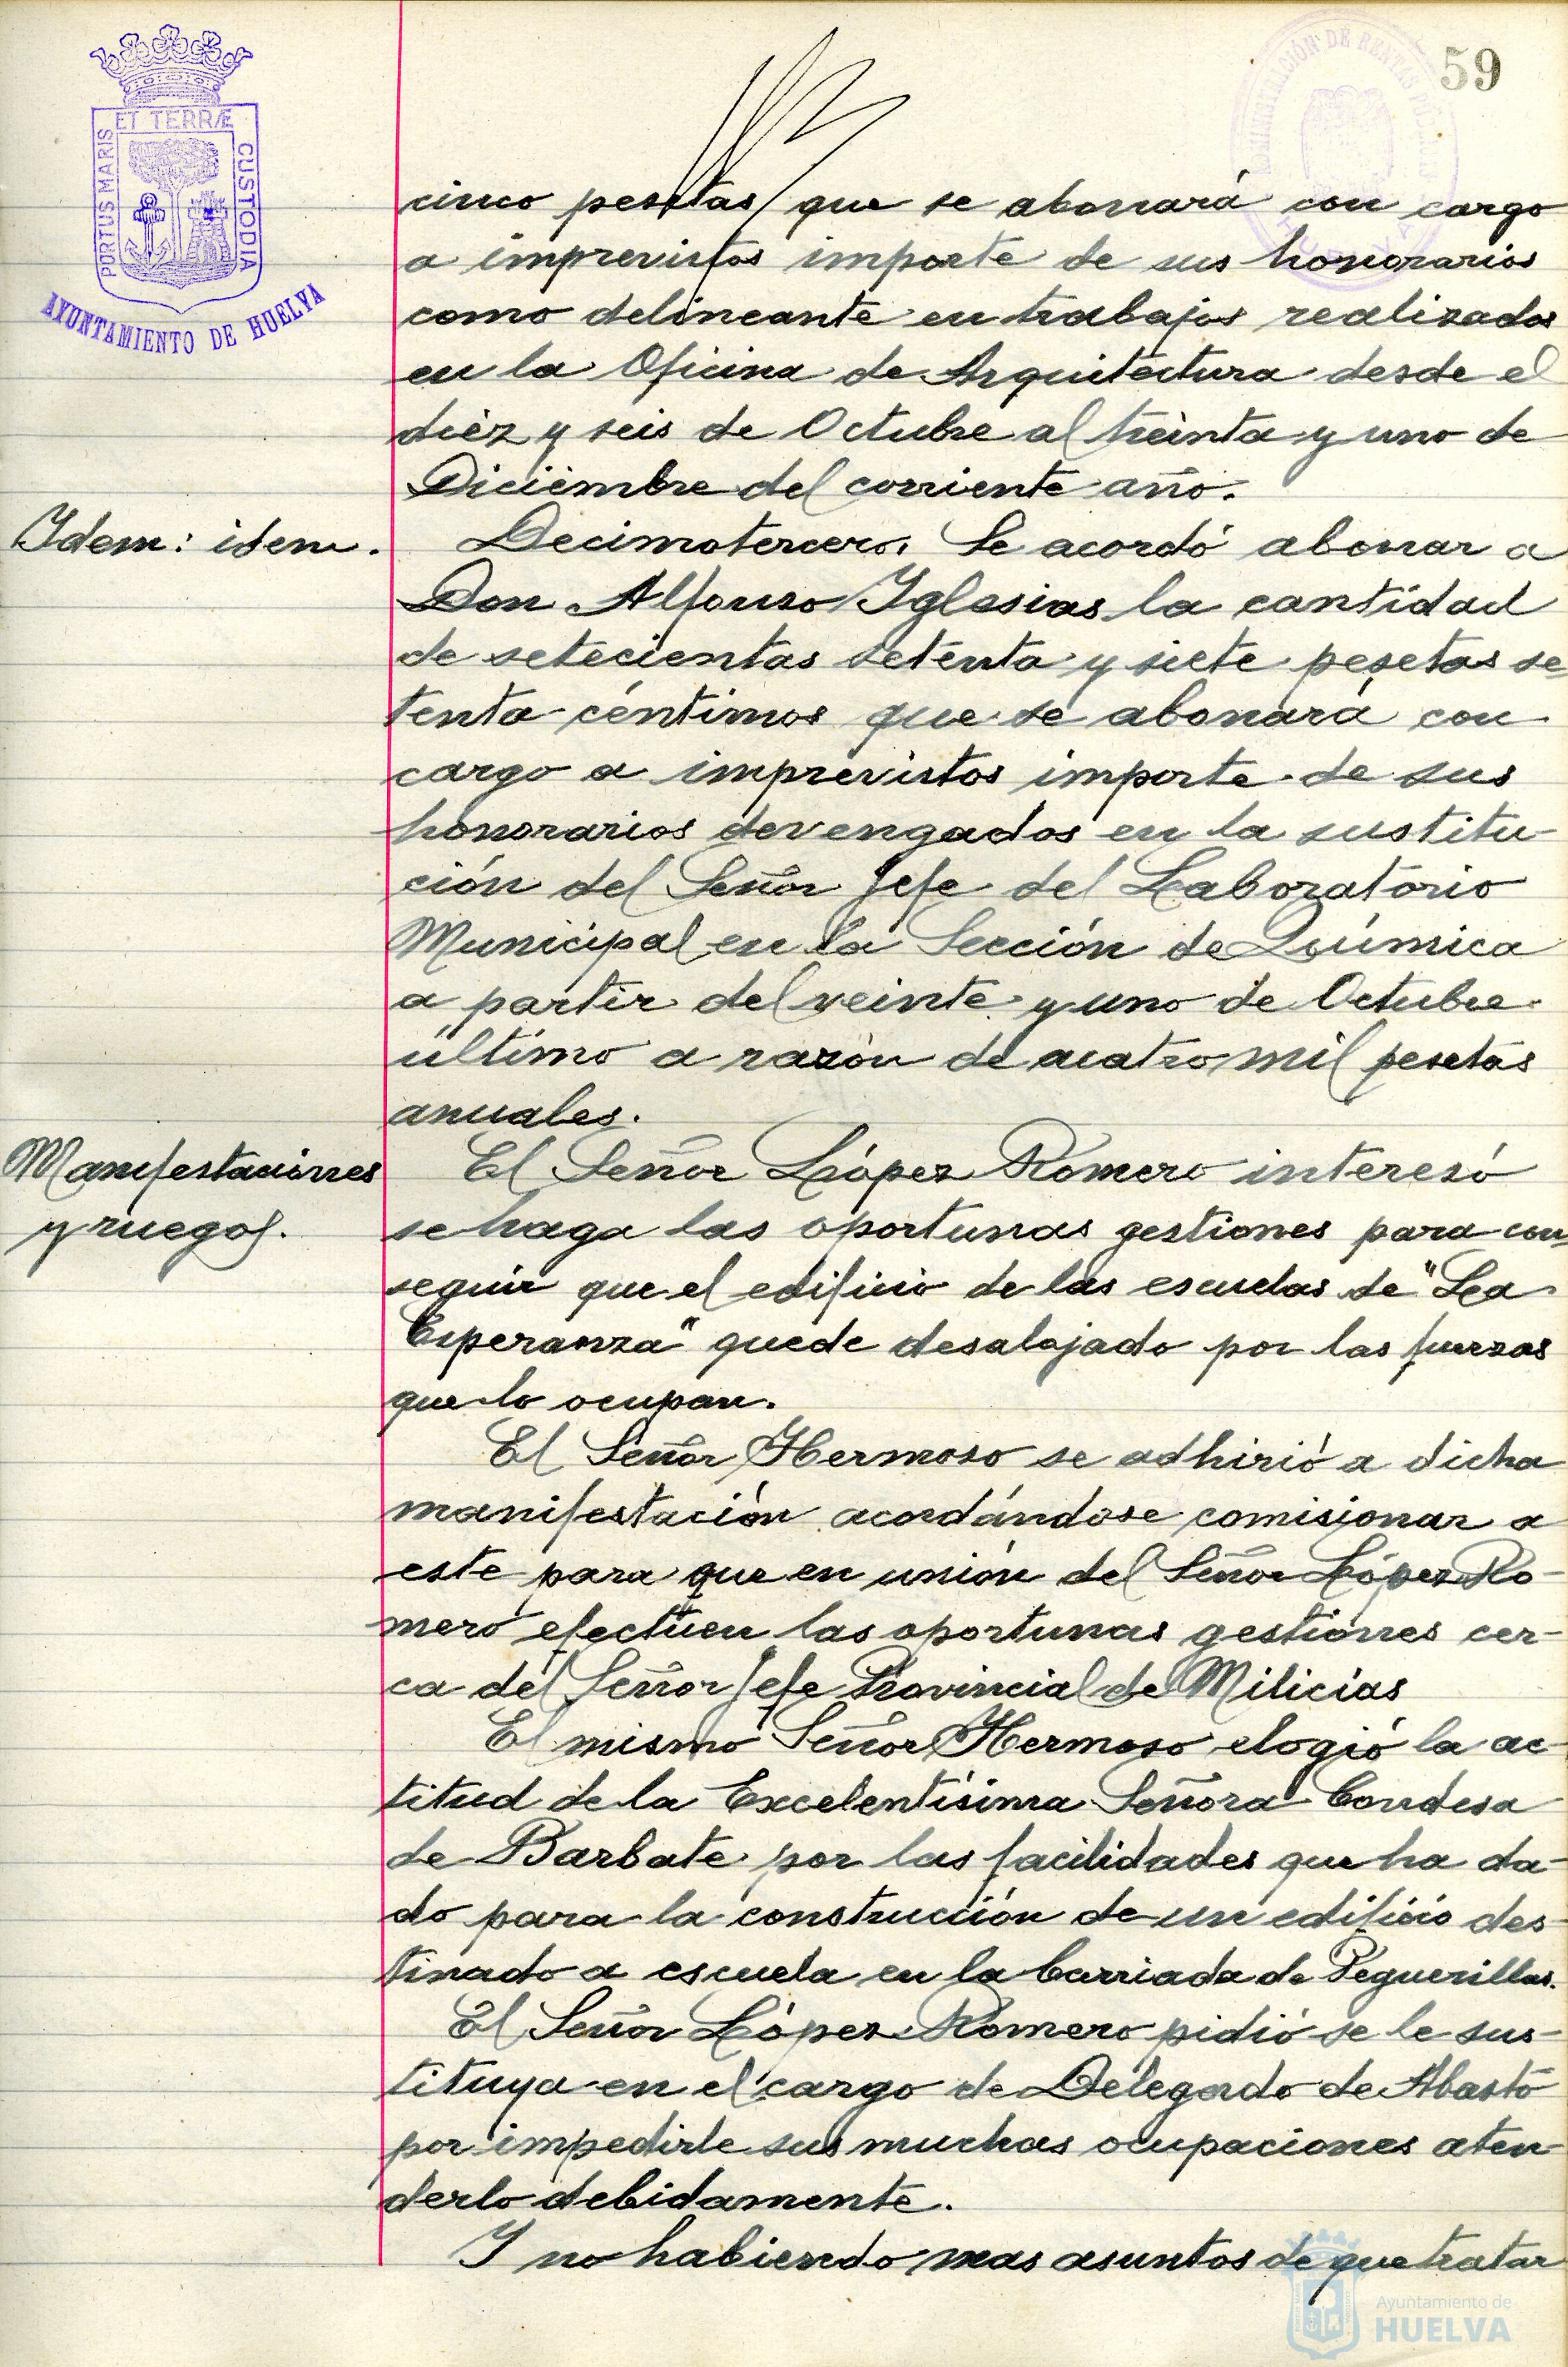 59
ET TERRÆ
PORTUS MARIS
CUSTODIA
AYUNTAMIENTO DE HUELVA
cinco pesetas que se abonará con cargo
a imprevistos importe de sus honorarios
como delineante en trabajos realizados
en la Oficina de Arquitectura desde el
diez y seis de Octubre al treinta y uno de
Diciembre del corriente año.
Idem: idem.
Decimotercero. Se acordó abonar a
Don Alfonso Iglesias la cantidad
de setecientas setenta y siete pesetas se
tenta céntimos que se abonará con
cargo a imprevistos importe de sus
honorarios devengados en la sustitu-
ción del Señor Jefe del Laboratorio
Municipal en la Sección de Química
a partir del veinte y uno de Octubre
último a razón de cuatro mil pesetas
anuales.
Manifestaciones
y ruegos.
El Señor López Romero interesó
se haga las oportunas gestiones para con-
seguir que el edificio de las escuelas de "La
Esperanza" quede desalojado por las fuerzas
que lo ocupan.
El Señor Hermoso se adhirió a dicha
manifestación acordándose comisionar a
este para que en unión del Señor López Ro-
mero efectúen las oportunas gestiones cer-
ca del Señor Jefe Provincial de Milicias
El mismo Señor Hermoso elogió la ac-
titud de la Excelentísima Señora Condesa
de Barbate por las facilidades que ha da-
do para la construcción de un edificio des-
tinado a escuela en la barriada de Peguerillas.
El Señor López Romero pidió se le sus-
tituya en el cargo de Delegado de Abasto
por impedirle sus muchas ocupaciones aten-
derlo debidamente.
Y no habiendo mas asuntos de que tratar
Ayuntamiento de
HUELVA